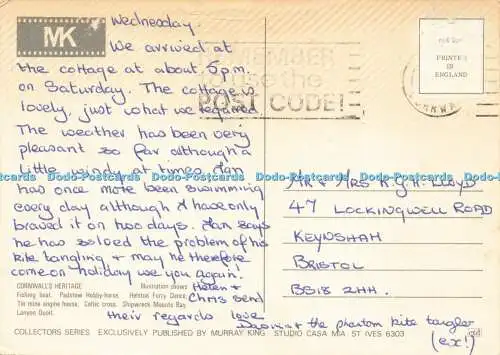 MK
Wednesday.
We arrived at
the cottage at about 5pm.
on Saturday. The cottage is
lovely, just what we required.
The weather has been very
pleasant so far although a
little windy at times. Ian
has once more been swimming
every day although I have only
braved it on two days. Ian says
he has solved the problem of his
kite tangling & may he therefore
come on holiday w. you again!
Helen &
Chris send
their regards love
& the phantom kite tangler
(ex!)
REMEMBER
to use the
POST CODE!
PRINTED
IN
ENGLAND
MR & MRS K.G.H. LLOYD
47 LOCKINGWELL ROAD
KEYNSHAM
BRISTOL
BS18 2HH.
CORNWALL'S HERITAGE Illustration shows
Fishing boat. Padstow Hobby-horse. Helston Furry Dance.
Tin mine engine house. Celtic cross. Shipwreck Mounts Bay.
Lanyon Quoit.
COLLECTORS SERIES EXCLUSIVELY PUBLISHED BY MURRAY KING STUDIO CASA MIA ST IVES 6303
Dodo-Postcards Dodo-Postcards Dodo-Postcards Dodo-Postcards Dodo-Postcards Dodo-Postcards